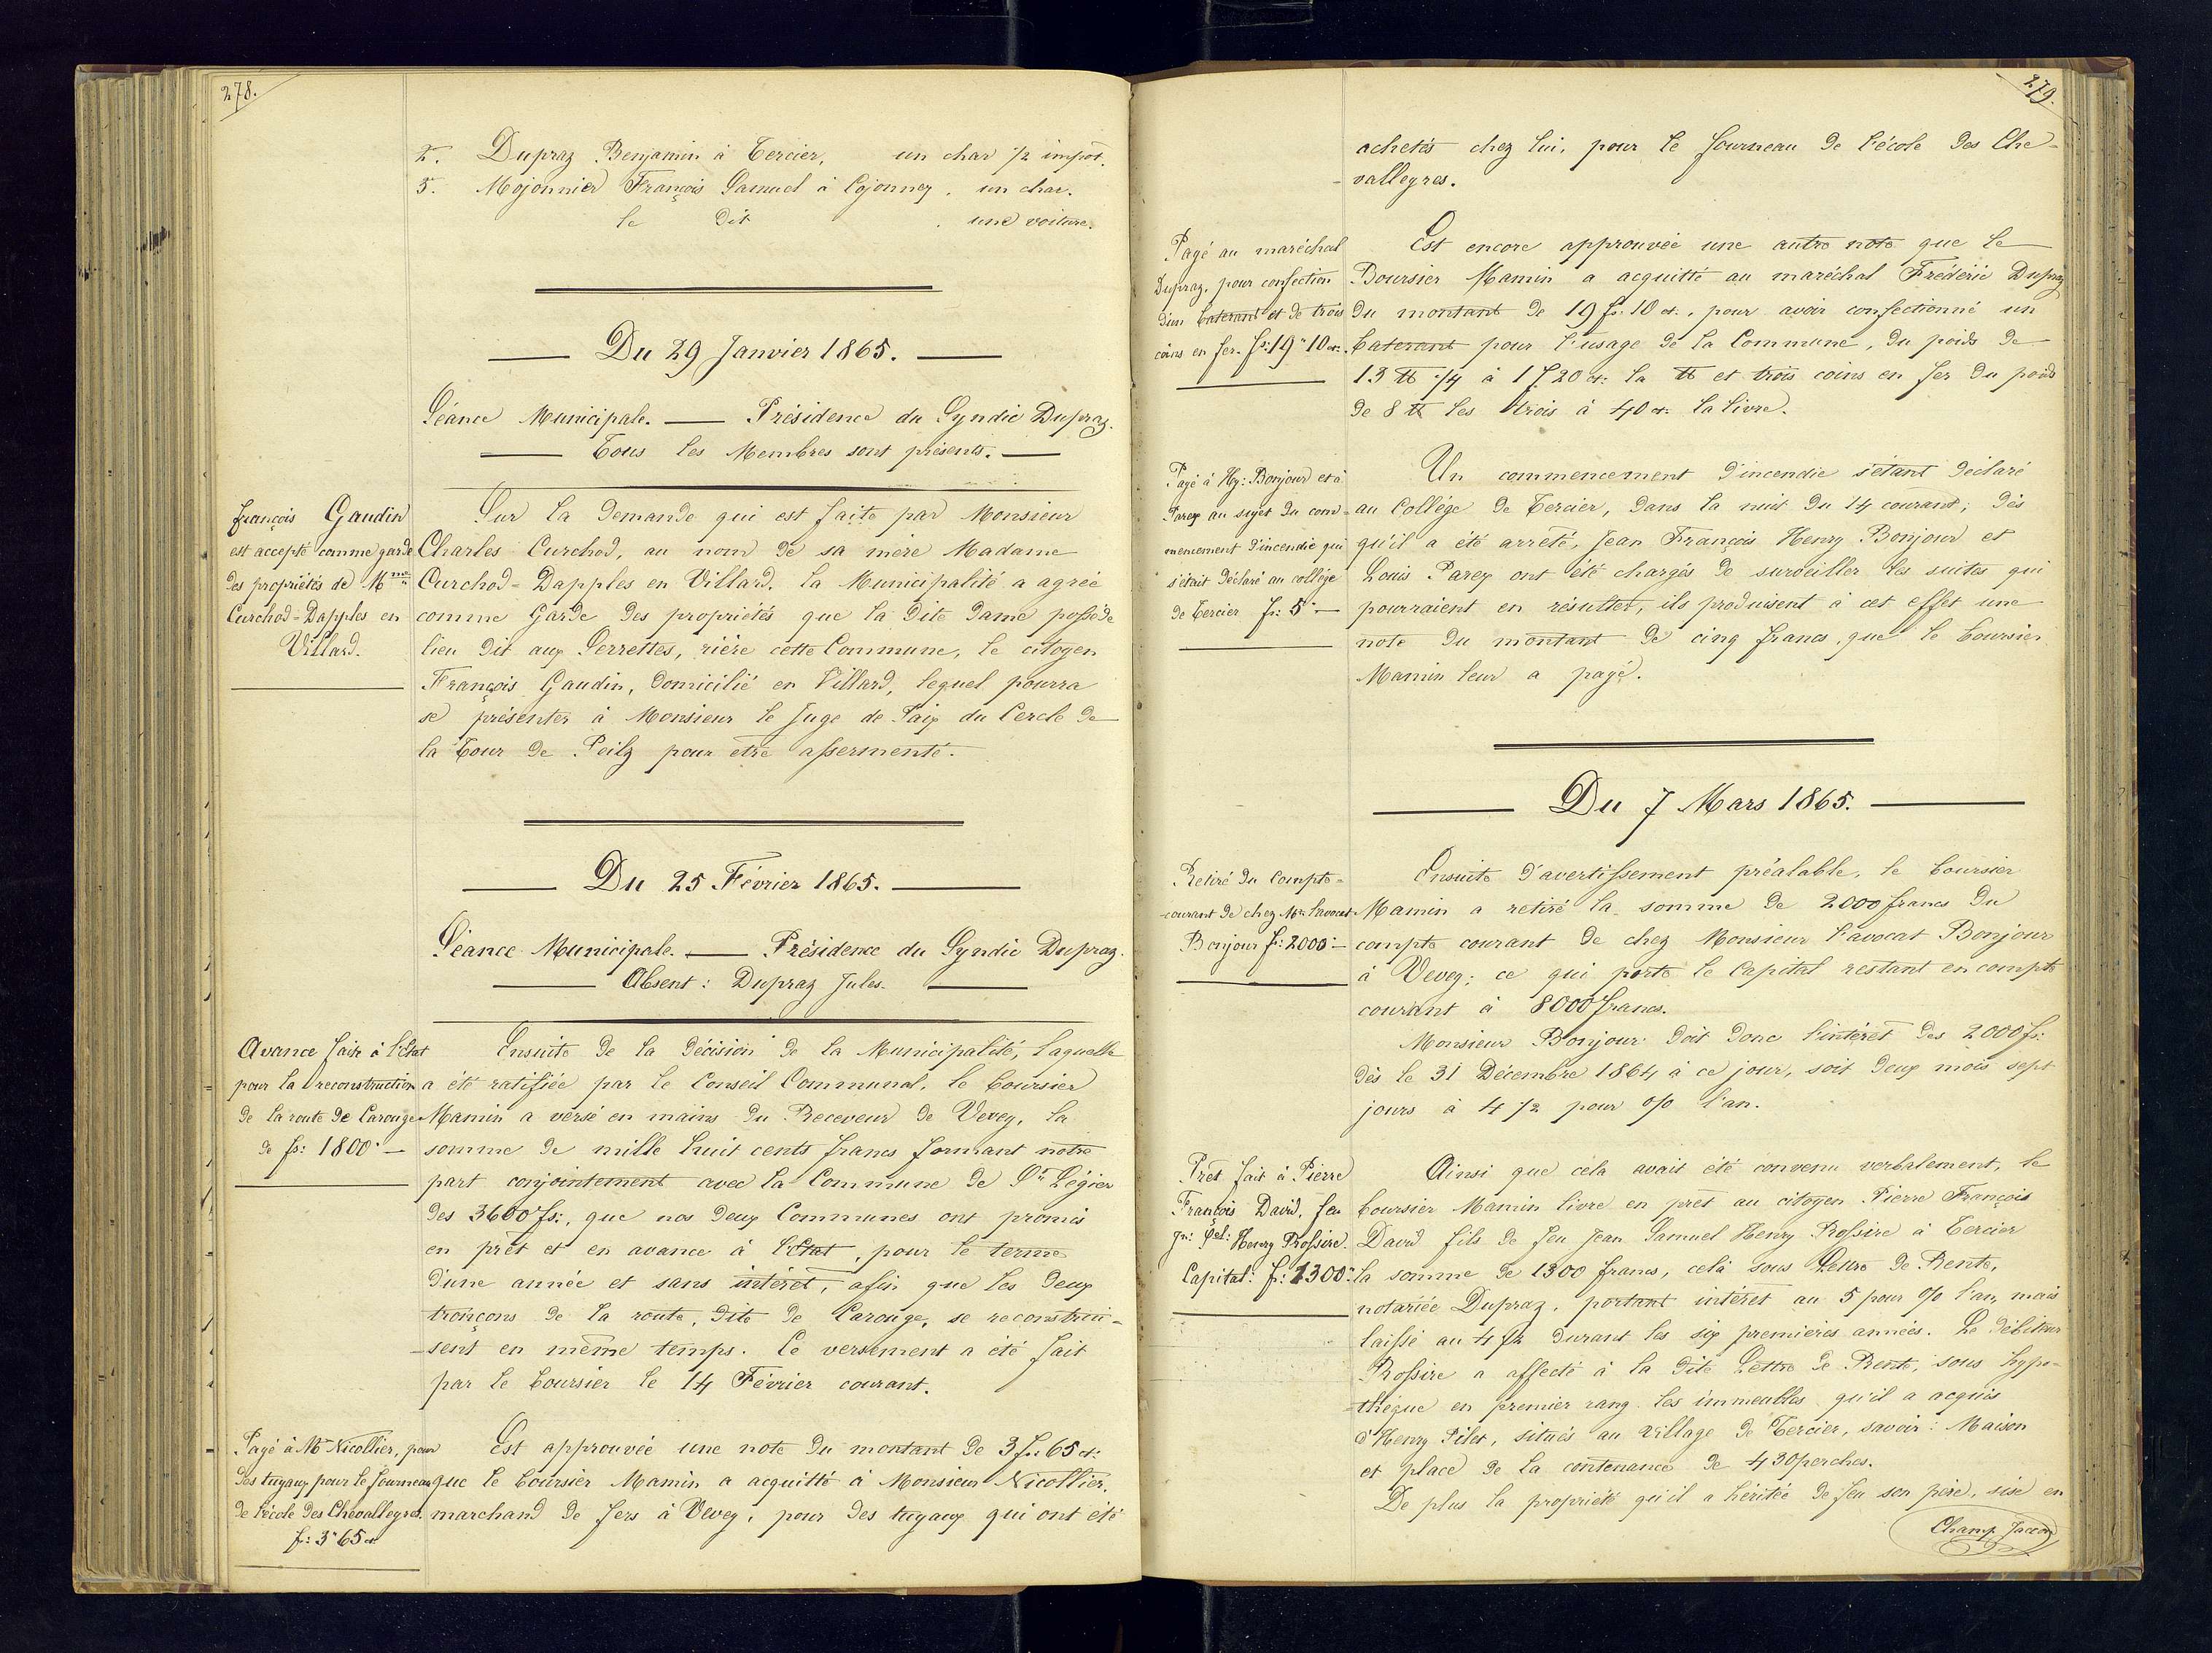 278.
2. Dupraz Benjamin à Tercier, un char 1/2 impôt.
5. Mojonnier François Samuel à Cojonnex, un char.
le dit une voiture.
Du 29 Janvier 1865.
Séance Municipale. — Présidence du Syndic Dupraz.
Tous les Membres sont présents.
François Gaudin
est accepté comme garde
des propriétés de Mme
Curchod-Dapples en
Villard.
Sur la demande qui est faite par Monsieur
Charles Curchod, au nom de sa mère Madame
Curchod-Dapples en Villard, la Municipalité a agréé
comme Garde des propriétés que la dite dame possède
lieu dit aux Serrettes, rière cette Commune, le citoyen
François Gaudin, domicilié en Villard, lequel pourra
se présenter à Monsieur le Juge de Paix du Cercle de
la Tour de Peilz pour être assermenté.
Du 25 Février 1865.
Séance Municipale. — Présidence du Syndic Dupraz.
Absent : Dupraz Jules.
Avance faite à l'Etat
pour la reconstruction
de la route de Carouge
de fs: 1800.—
Ensuite de la décision de la Municipalité, laquelle
a été ratifiée par le Conseil Communal, le boursier
Mamin a versé en mains du Receveur de Vevey, la
somme de mille huit cents francs formant notre
part conjointement avec la Commune de St Légier
des 3600 fs:, que nos deux Communes ont promis
en prêt et en avance à l'Etat, pour le terme
d'une année et sans intérêt, afin que les deux
tronçons de la route, dite de Carouge, se reconstrui-
-sent en même temps. Ce versement a été fait
par le boursier le 14 Février courant.
Payé à Mr Nicollier, pour
des tuyaux pour le fourneau
de l'école des Chevalleyres.
fs: 3"65 ct
Est approuvée une note du montant de 3 fs: 65 ct:
que le boursier Mamin a acquitté à Monsieur Nicollier,
marchand de fers à Vevey, pour des tuyaux qui ont été
279.
achetés chez lui, pour le fourneau de l'école des Che-
-valleyres.
Payé au maréchal
Dupraz, pour confection
d'un baterant et de trois
coins en fer. fs: 19"10 ct:
Est encore approuvée une autre note que le
Boursier Mamin a acquitté au maréchal Frédéric Dupraz
du montant de 19 fs: 10 ct:, pour avoir confectionné un
baterant pour l'usage de la Commune, du poids de
13 ℔ 1/4 à 1 f 20 ct: la ℔ et trois coins en fer du poids
de 8 ℔ les trois à 40 ct: la livre.
Payé à Hy: Bonjour et à
Parey au sujet du com-
mencement d'incendie qui
s'était déclaré au collège
de Tercier fs: 5"—
Un commencement d'incendie s'étant déclaré
au Collége de Tercier, dans la nuit du 14 courant; dès
qu'il a été arrêté, Jean François Henry Bonjour et
Louis Parey ont été chargés de surveiller les suites qui
pourraient en résulter, ils produisent à cet effet une
note du montant de cinq francs, que le boursier
Mamin leur a payé.
Du 7 Mars 1865.
Retiré du Compte-
-courant de chez Mr l'avocat
Bonjour fs: 2000.—
Ensuite d'avertissement préalable, le boursier
Mamin a retiré la somme de 2000 francs du
compte courant de chez Monsieur l'avocat Bonjour
à Vevey; ce qui porte le Capital restant en compte
courant à 8000 francs.
Monsieur Bonjour doit donc l'intérêt des 2000 fs:
dès le 31 Décembre 1864 à ce jour, soit deux mois sept
jours à 4 1/2 pour 0/0 l'an.
Prêt fait à Pierre
François David, feu
Jn: Sel: Henry Rossire.
Capital: fs: 1300"
Ainsi que cela avait été convenu verbalement, le
boursier Mamin livre en prêt au citoyen Pierre François
David fils de feu Jean Samuel Henry Rossire à Tercier
la somme de 1300 francs, cela sous Lettre de Rente,
notariée Dupraz, portant intérêt au 5 pour 0/0 l'an, mais
laissé au 4 1/2 durant les six premières années. Le débiteur
Rossire a affecté à la dite Lettre de Rente, sous hypo-
-thèque en premier rang les immeubles qu'il a acquis
d'Henry Pilet, situés au village de Tercier, savoir: Maison
et place de la contenance de 4 30 perches.
De plus la propriété qu'il a héritée de feu son père, sise en
Champ Jaccoz